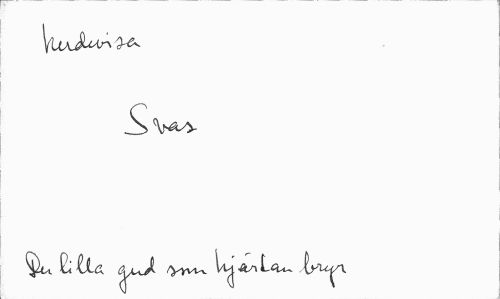 herdevisa
Svas
Du lilla gud som hjärtan bryr